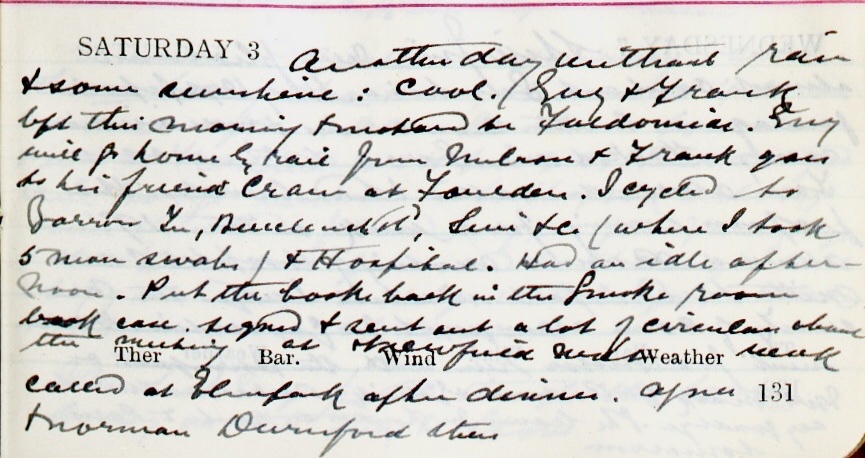 SATURDAY 3 Another day without rain
& some sunshine : cool. (Guy & Frank
left this morning & motored to Guy
will go home by rail from & Frank goes
to his friend at . I cycled to
Barrow , , & Co (where I took
5 more swabs) & Hospital. Had an idle after-
noon. Put the books back in the Smoke room
book case. signed & sent out a lot of circulars about
the meeting at next week
Ther Bar. Wind Weather
called at after dinner. Agnes 131
& Norman Durnford there